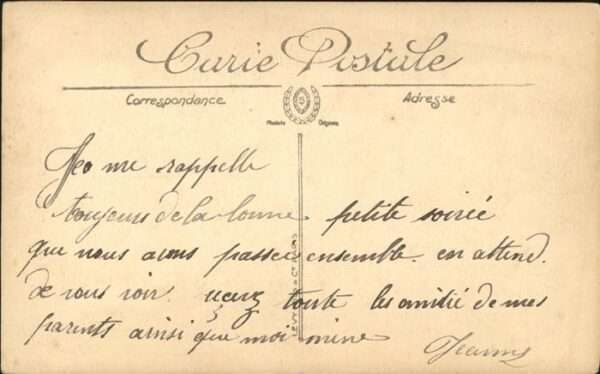 Carte Postale
Correspondance
Adresse
Modèle Déposés
me rappelle
toujours de la bonne petite soirée
que nous avons passee ensemble. en attend.
de vous voir. toute les amitié de mes
parents ainsi que moi mine